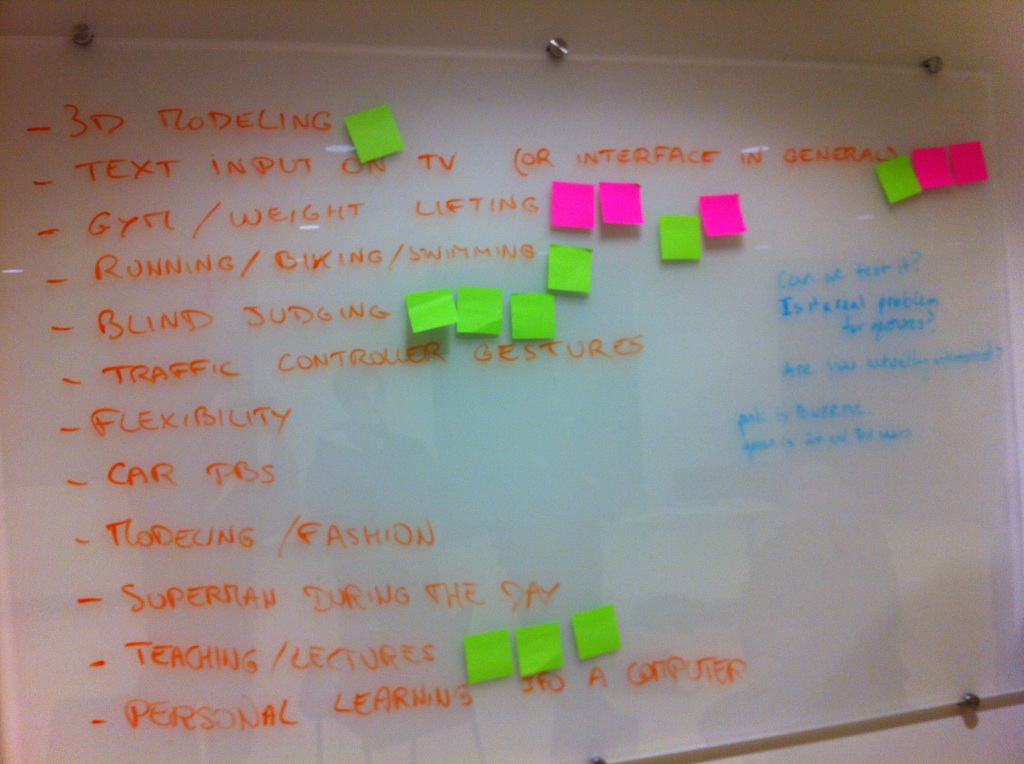 - 3D MODELING
- TEXT INPUT ON TV (OR INTERFACE IN GENERAL)
- GYM / WEIGHT LIFTING
- RUNNING / BIKING / SWIMMING
- BLIND JUDGING
- TRAFFIC CONTROLLER GESTURES
- FLEXIBILITY
- CAR
- MODELING / FASHION
- SUPERMAN DURING THE DAY
- TEACHING / LECTURES
- PERSONAL LEARNING A COMPUTER
Can we test it?
Is it a real problem
for
Are you actually interested?